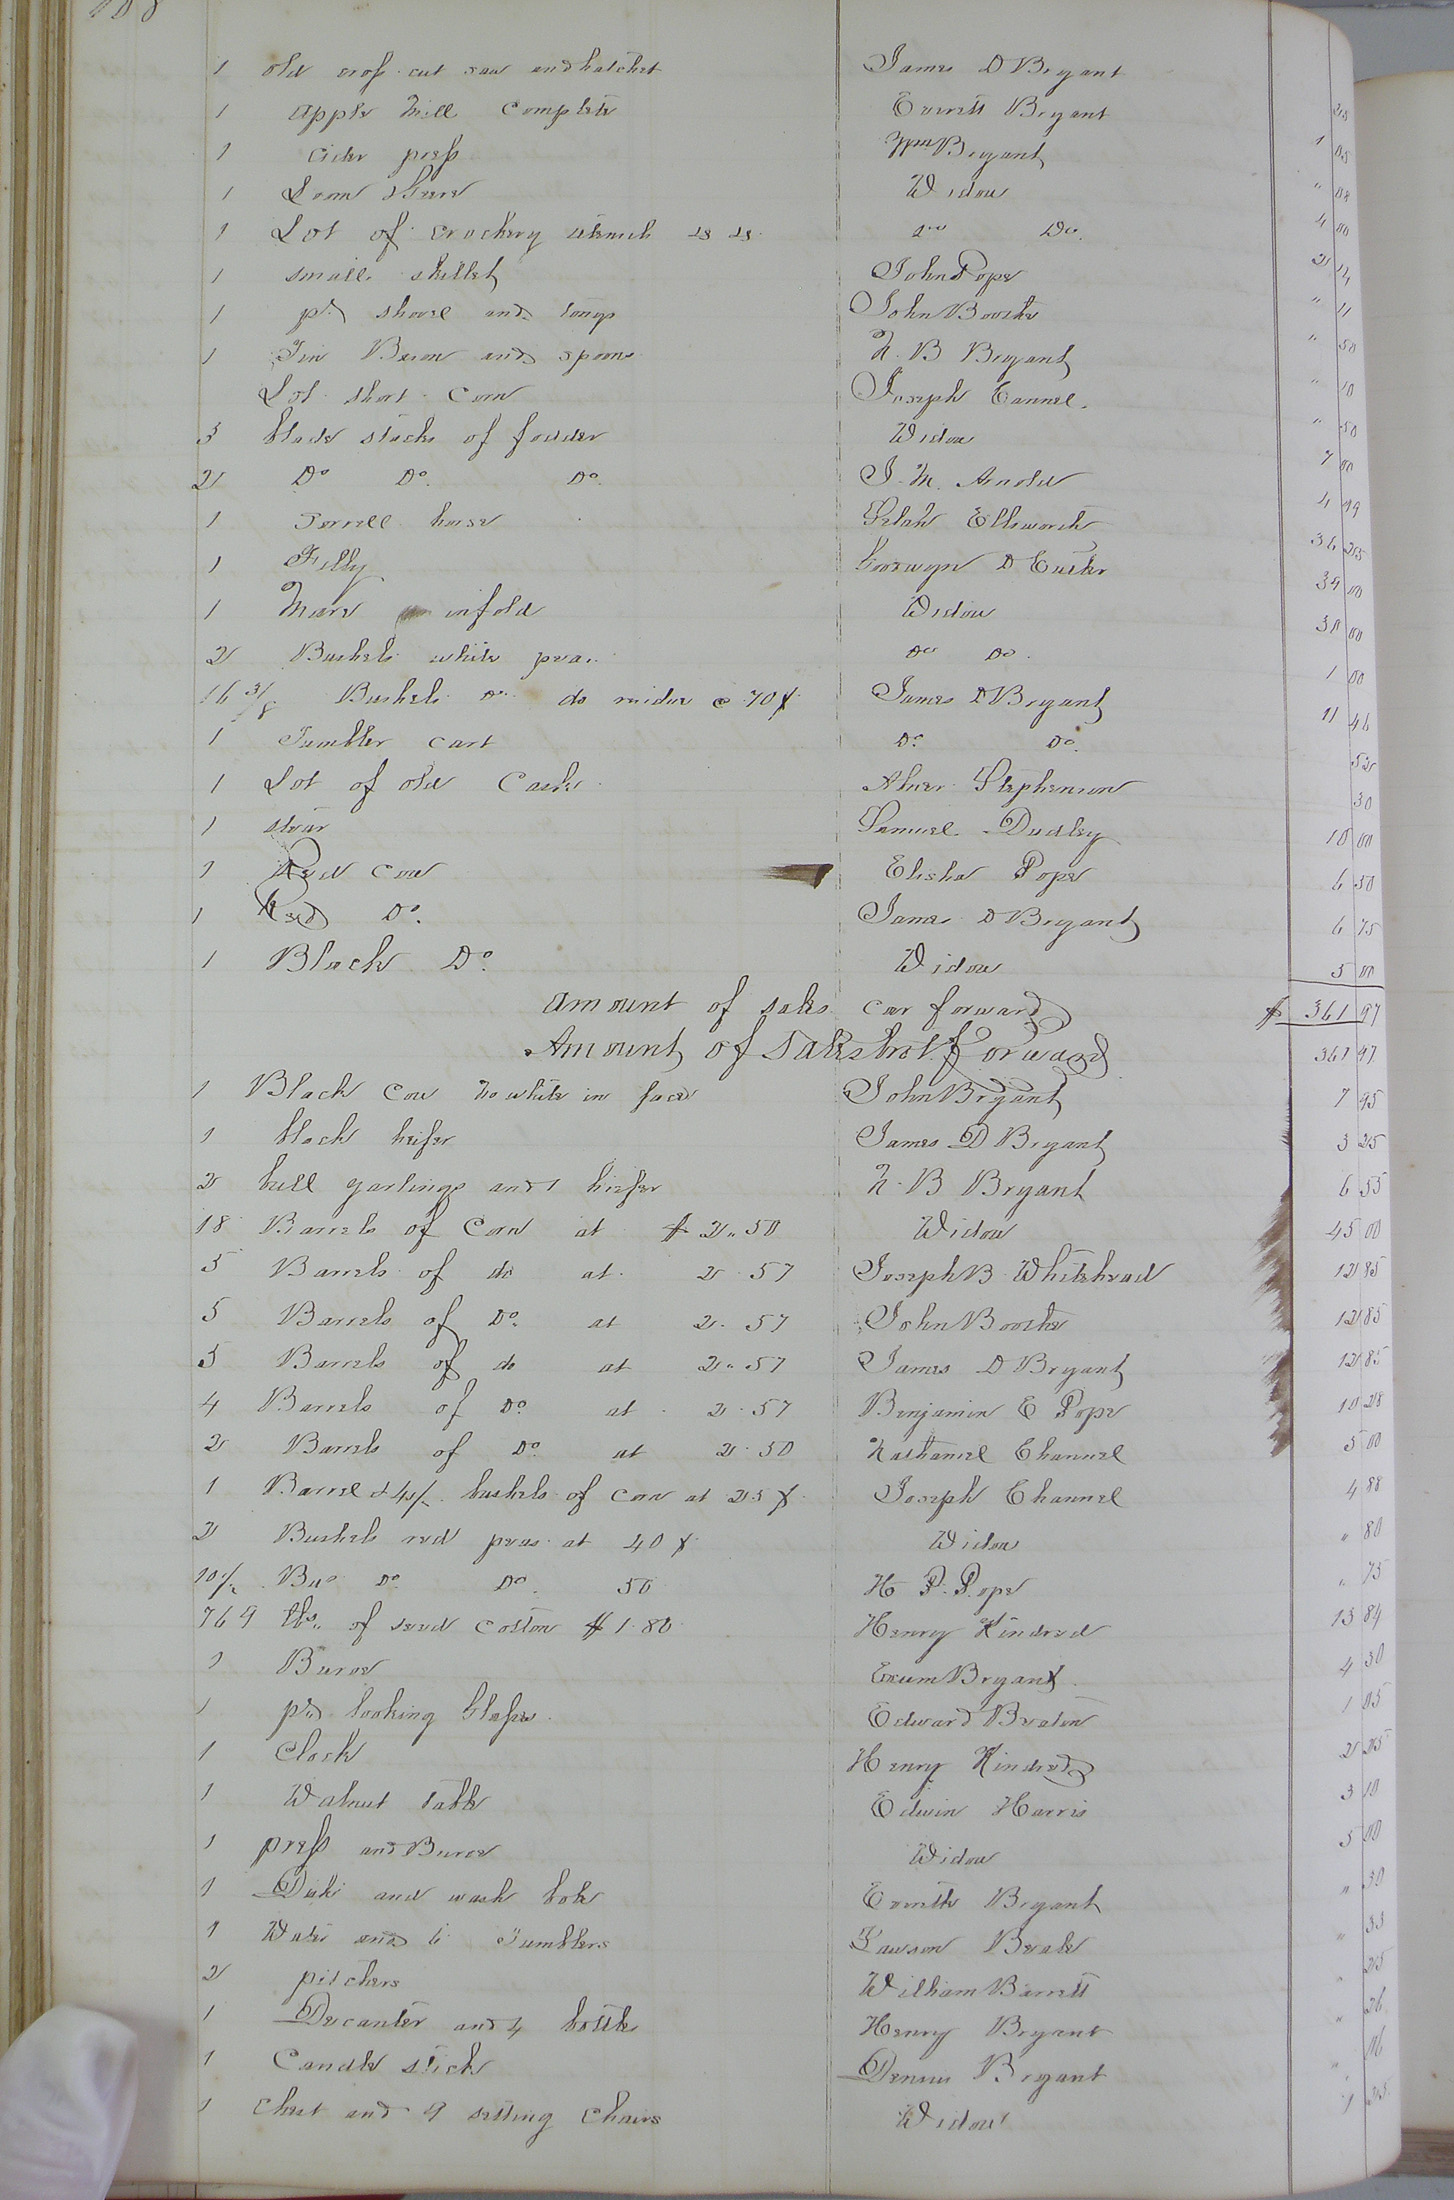 188
1 old cross cut saw and hatchet James D Bryant 25
1 apple Mill Complete Everitt Bryant 1 05
1 Cider press Wm Bryant " 08
1 Loom & Geer Widow 4 00
1 Lot of crockery utensils &c &c Do Do. 2 12
1 small skillet John Pope " 11
1 pr shovel and tongs John Boothe " 50
1 Tin Bason and spoons N. B Bryant " 10
Lot short Corn Joseph Cannel. " 50
3 blade stacks of fodder Widow 7 00
2 Do Do. Do. J. M. Arnold 4 99
1 Sorrell horse Ellsworth 36 25
1 Filly Goodwyn D 39 00
1 Mare infold Widow 30 00
2 Bushels white peas Do Do. 1 00
16 3/8 Bushels Do do residue @ 70 ¢ James D Bryant 11 46
1 Tumbler Cart Do. Do. 52
1 Lot of old Casks Abner Stephenson 30
1 stear Samuel Dudley 10 00
1 Red Cow Elisha Pope 6 50
1 Red Do. James D Bryant 6 75
1 Black Do. Widow 5 00
Amount of sales car forward $ 361 97
Amount of Sales brot. forward 361 97
1 Black Cow no white in face John Bryant 7 95
1 black heifer James D Bryant 3 25
2 bull yarlings and 1 hiefer N. B Bryant 6 55
18 Barrels of Corn at $ 2.. 50 Widow 45 00
5 Barrels of do at. 2. 57 Joseph B Whitehead 12 85
5 Barrels of Do. at 2. 57 John Boothe 12 85
5 Barrels of do at 2.. 57 James D Bryant 12 85
4 Barrels of Do. at 2. 57 Benjamin E Pope 10 28
2 Barrels of Do at 2. 50 Nathaniel Channel 5 00
1 Barrel & 4 1/2 bushels of Corn at 25 ¢ Joseph Channel 4 88
2 Bushels red peas at 40 ¢ Widow " 80
1 1/2 Bus Do. Do. 50 H P. Pope " 75
769 lbs.. of seed Cotton $ 1. 80 Henry Kindred 13 84
1 Buroe Exum Bryant 4 30
1 pr looking Glasses Edward Beaton 1 05
1 Clock Henry Kindred 2 25
1 Walnut table Edwin Harris 3 10
1 press and Buroe Widow 5 00
1 and wash bole Everitte Bryant " 30
1 Water and 6 Tumblers Lawson Beale " 33
2 pitchers William Barrett " 25
1 Decanter and 4 bottles Henry Bryant " 26
1 Candle stick Dennis Bryant " 16
1 Chest and 9 setting Chairs Widow 1 25